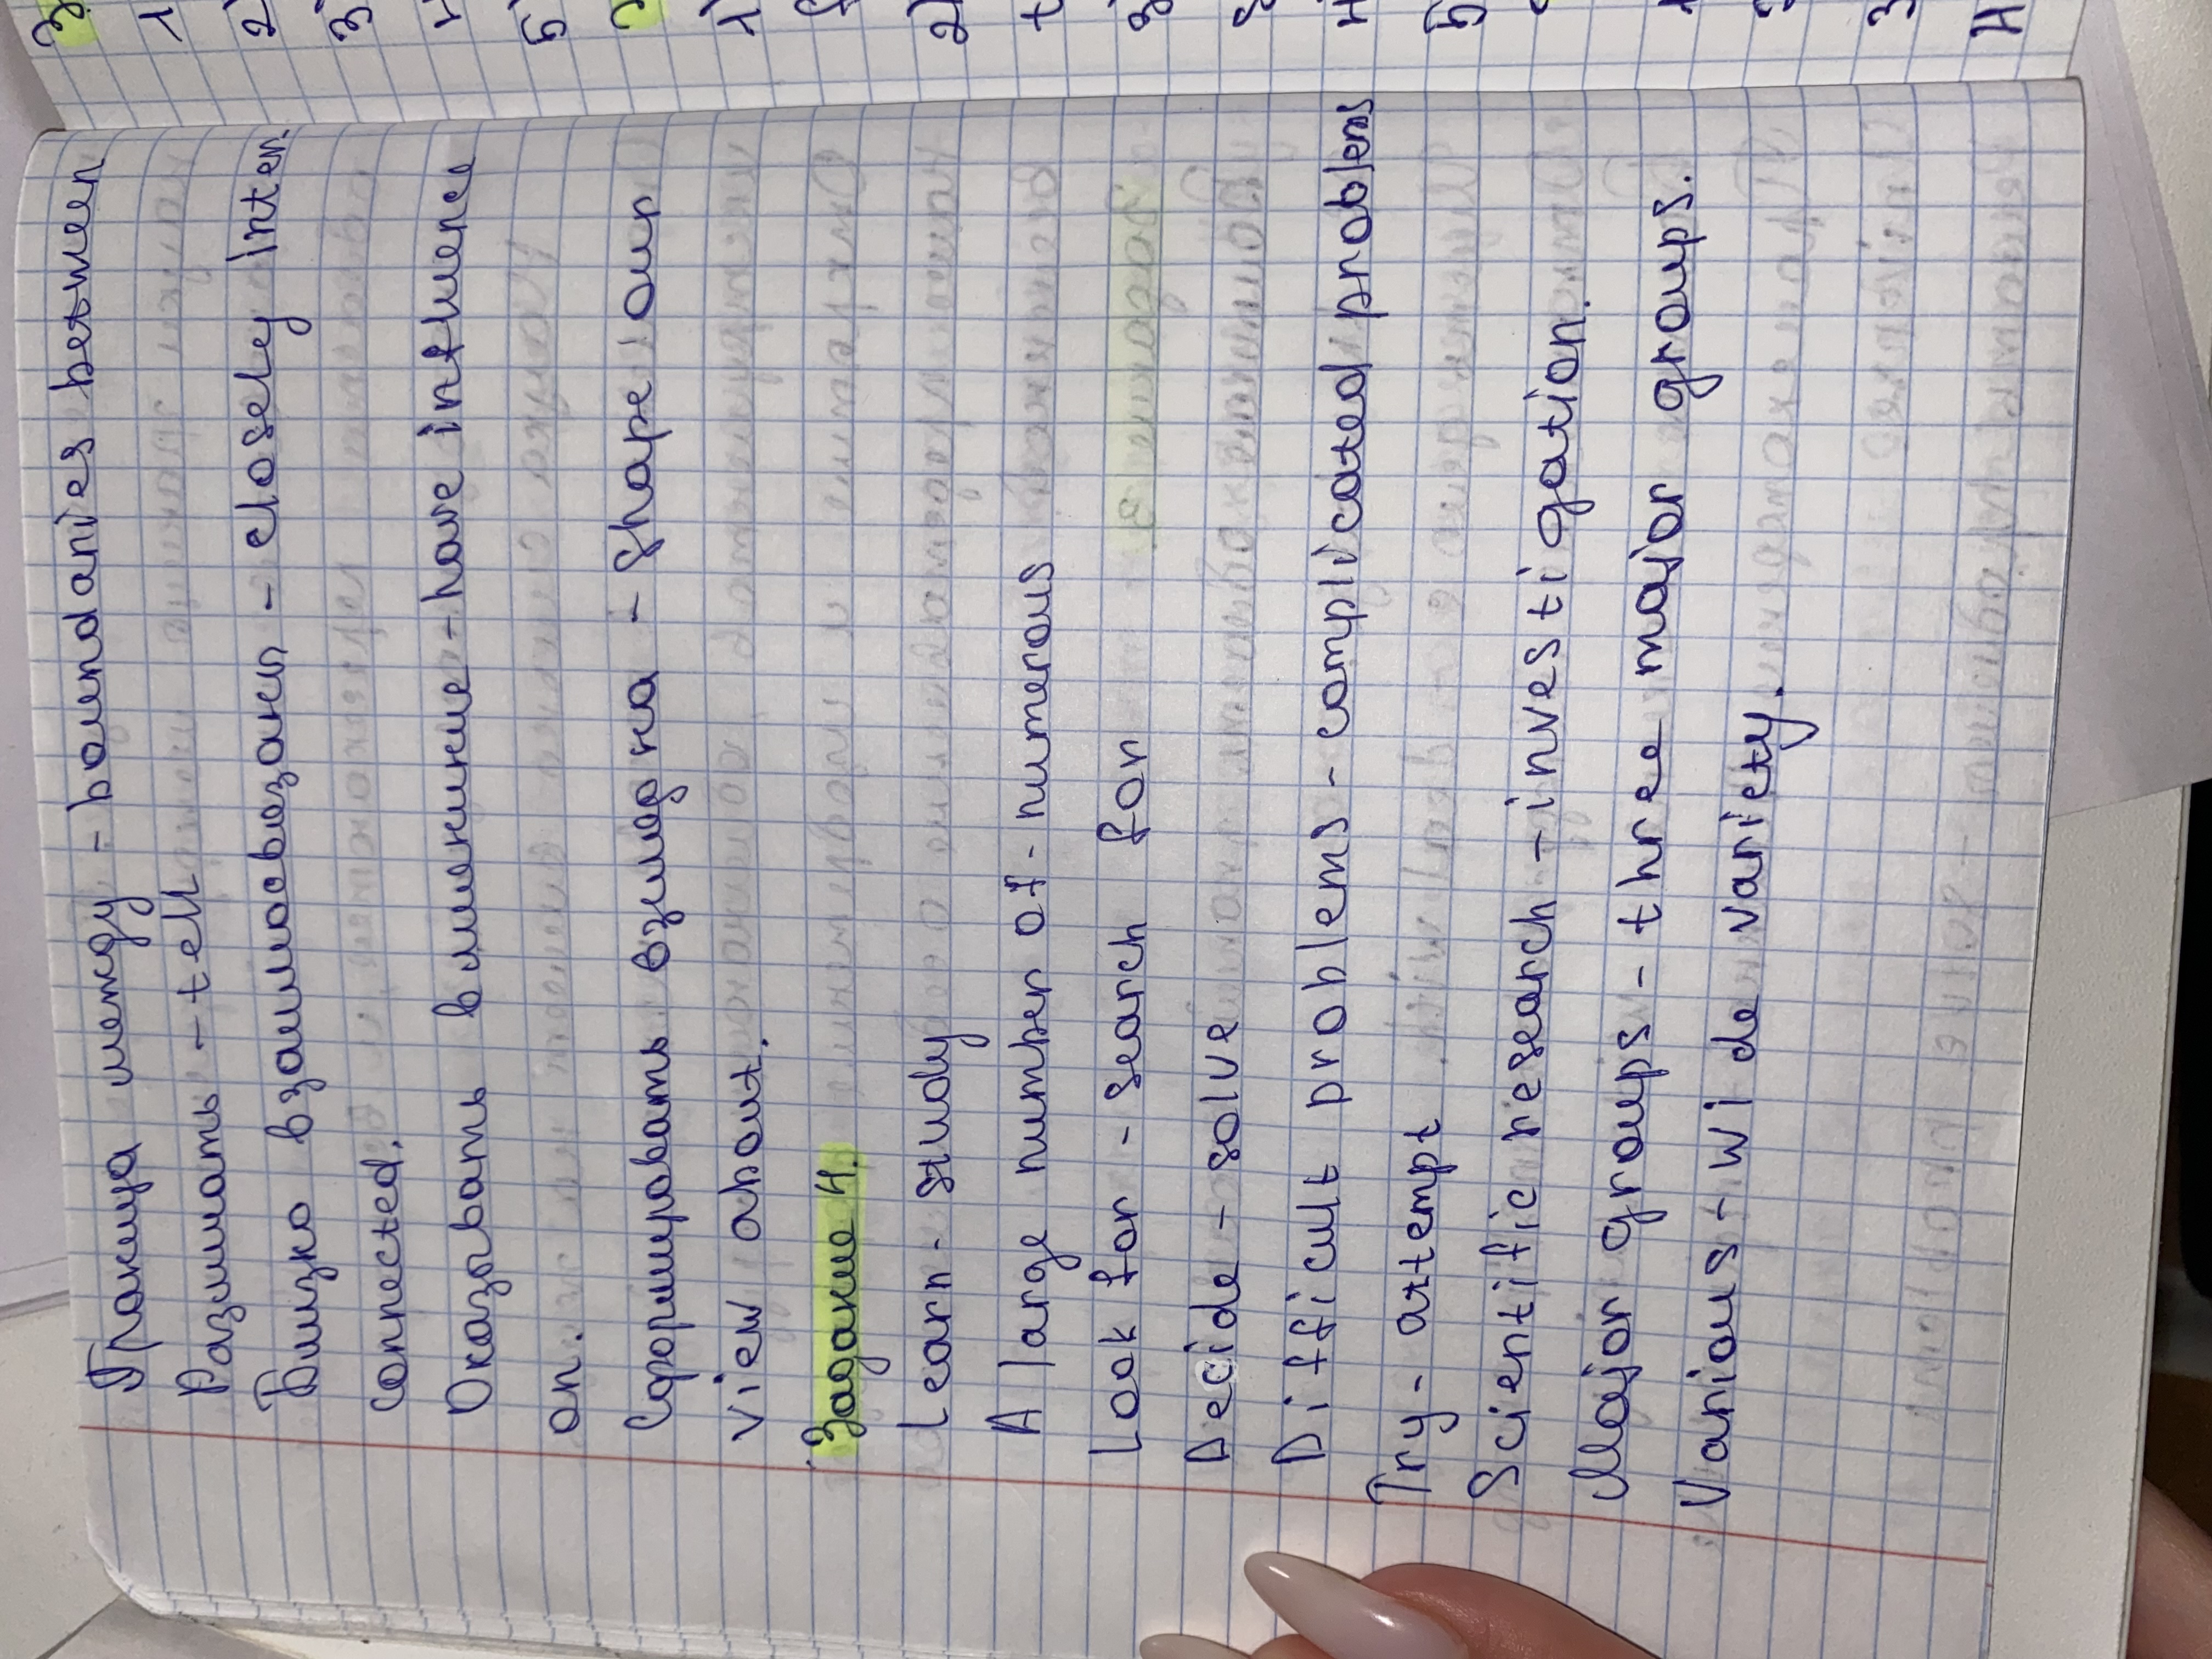 Граница между - boundaries between
Различать - tell
Близко взаимосвязаны - closely inter
connected.
Оказывать влияние - have influence
on.
Сформировать взгляд на - shape our
view about.
Задание 4.
Learn - study
A large number of - numerous
Look for - search for
Decide - solve
Difficult problems - complicated problems
Try - attempt
Scientific research - investigation.
Major groups - three major groups.
Various - wide variety.